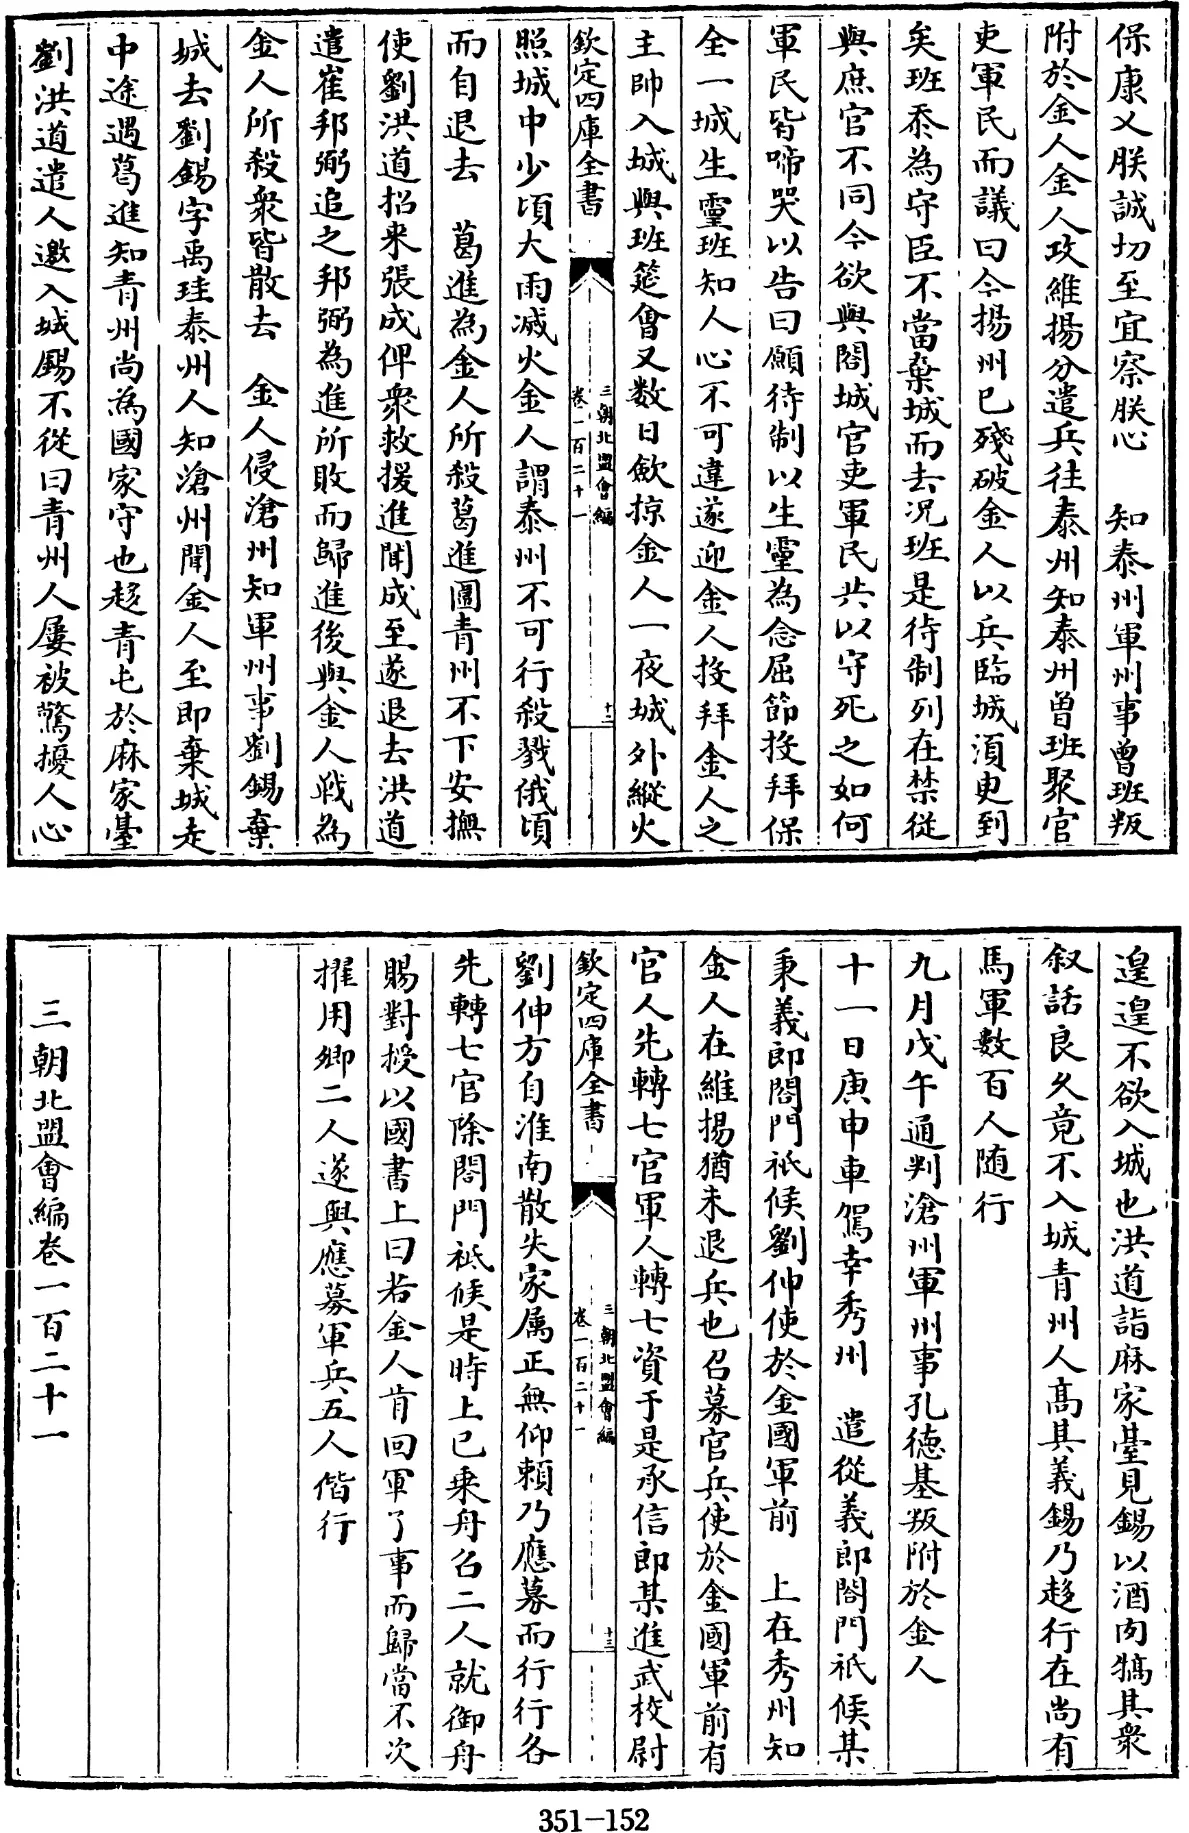 保康乂朕誠切至宜察朕心　知泰州軍州事曾班叛
附於金人金人攻維揚分遣兵往泰州知泰州曾班聚官
吏軍民而議曰今揚州已殘破金人以兵臨城湏更到
矣班忝為守臣不當棄城而去况班是待制列在禁從
與庶官不同今欲與閤城官吏軍民共以守死之如何
軍民皆啼哭以告曰願待制以生靈為念屈節投拜保
全一城生靈班知人心不可違遂迎金人投拜金人之
主帥入城與班筵會又数日歛掠金人一夜城外縱火
欽定四庫全書
三朝北盟會編
卷一百二十一
十二
照城中少頃大雨滅火金人謂泰州不可行殺戮俄頃
而自退去　葛進為金人所殺葛進圍青州不下安撫
使劉洪道招来張成俾衆救援進聞成至遂退去洪道
遣崔邦弼追之邦弼為進所敗而歸進後與金人戰為
金人所殺衆皆散去　金人侵滄州知軍州事劉錫棄
城去劉錫字禹珪泰州人知滄州聞金人至即棄城走
中途遇葛進知青州尚為國家守也趍青屯於麻家臺
劉洪道遣人邀入城錫不從曰青州人屢被驚擾人心
遑遑不欲入城也洪道詣麻家臺見錫以酒肉犒其衆
叙話良久竟不入城青州人髙其義錫乃趍行在尚有
馬軍數百人随行
九月戊午通判滄州軍州事孔徳基叛附於金人
十一日庚申車駕幸秀州　遣從義郎閤門祗候某
秉義郎閤門祗候劉仲使於金國軍前　上在秀州知
金人在維揚猶未退兵也召募官兵使於金國軍前有
官人先轉七官軍人轉七資于是承信郎某進武校尉
欽定四庫全書
三朝北盟會編
卷一百二十一
十三
劉仲方自淮南散失家属正無仰賴乃應募而行行各
先轉七官除閤門祗候是時上已乗舟召二人就御舟
賜對授以國書上曰若金人肯回軍了事而歸當不次
擢用卿二人遂與應募軍兵五人偕行
三朝北盟會編卷一百二十一
351-152